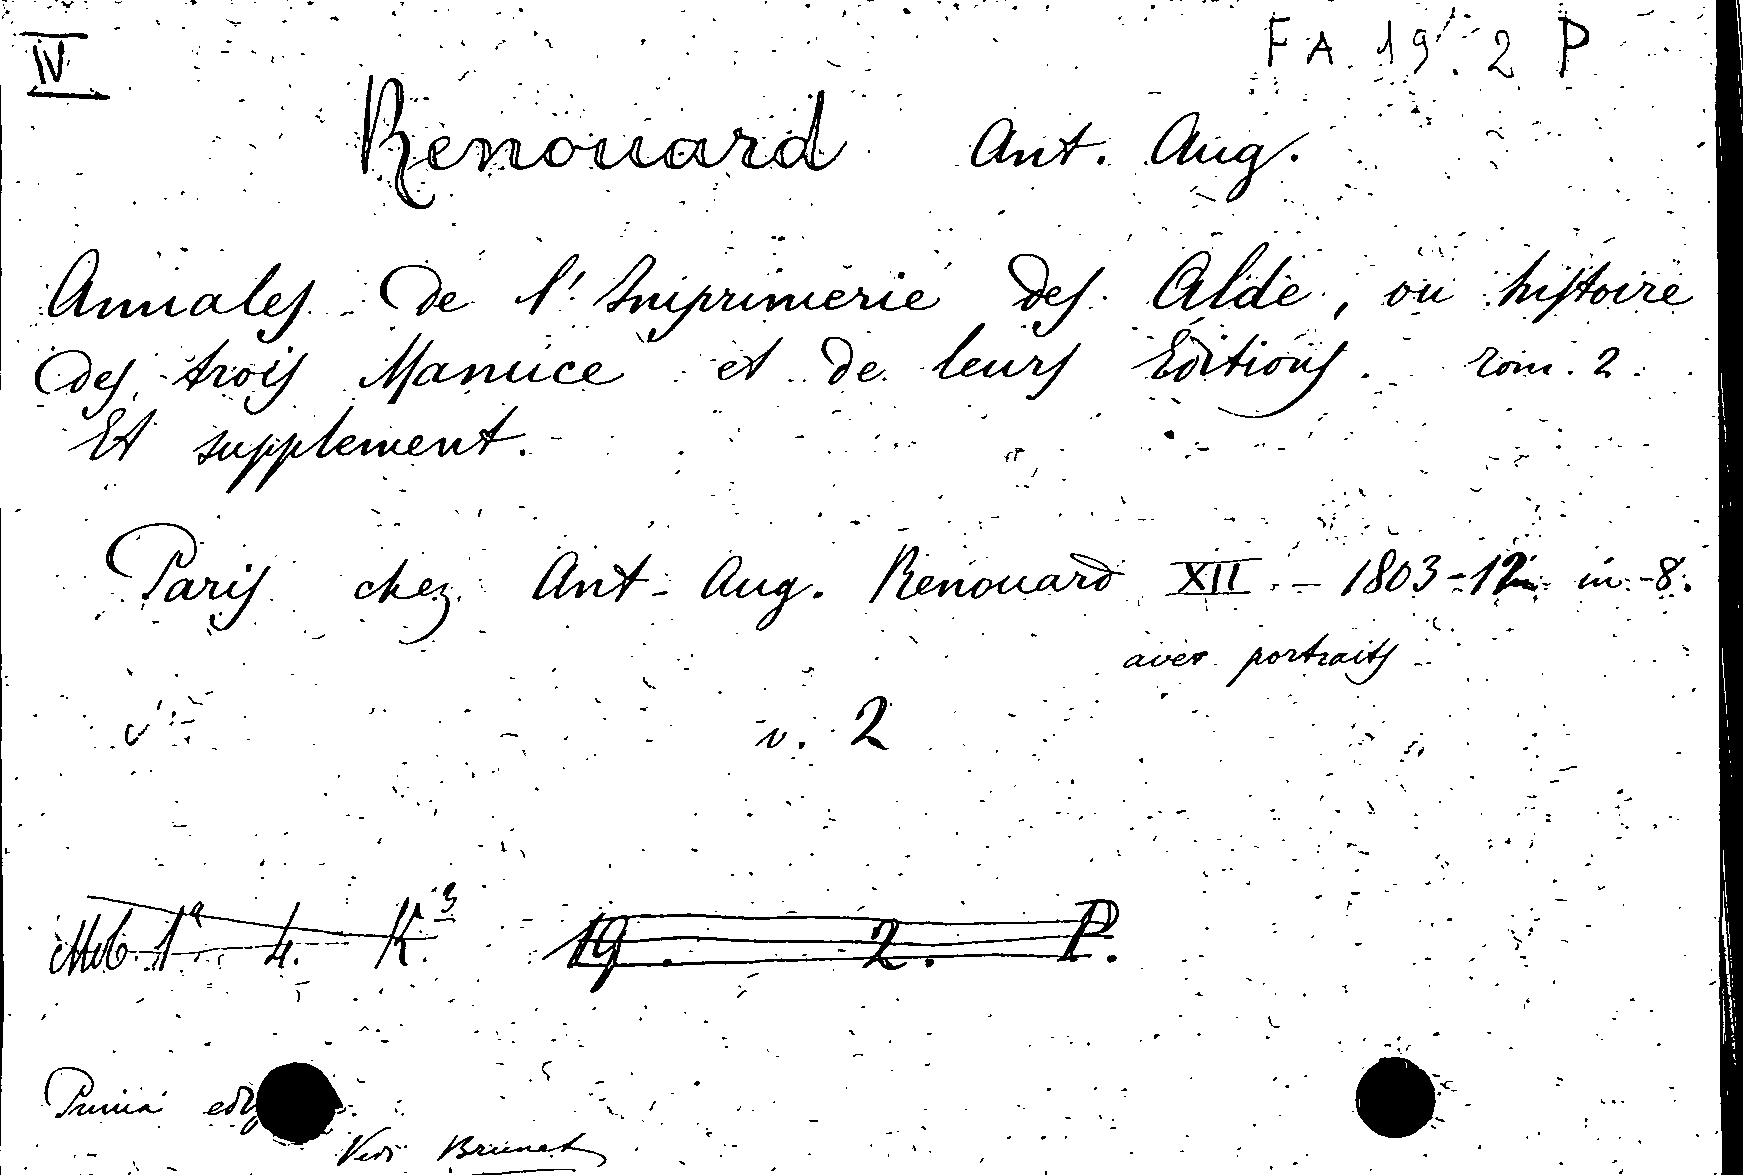 IV
FA. 19. 2 P
Renouard Ant. Aug.
Annales de l'Imprimerie des Alde, ou histoire
des trois Manuce et de leurs Editions. Tom. 2.
Et supplement.
Paris chez Ant. Aug. Renouard XII - 1803-12 in-8.
avec portraits
v. 2
19. 2. P.
Prima
Vedi Brunet